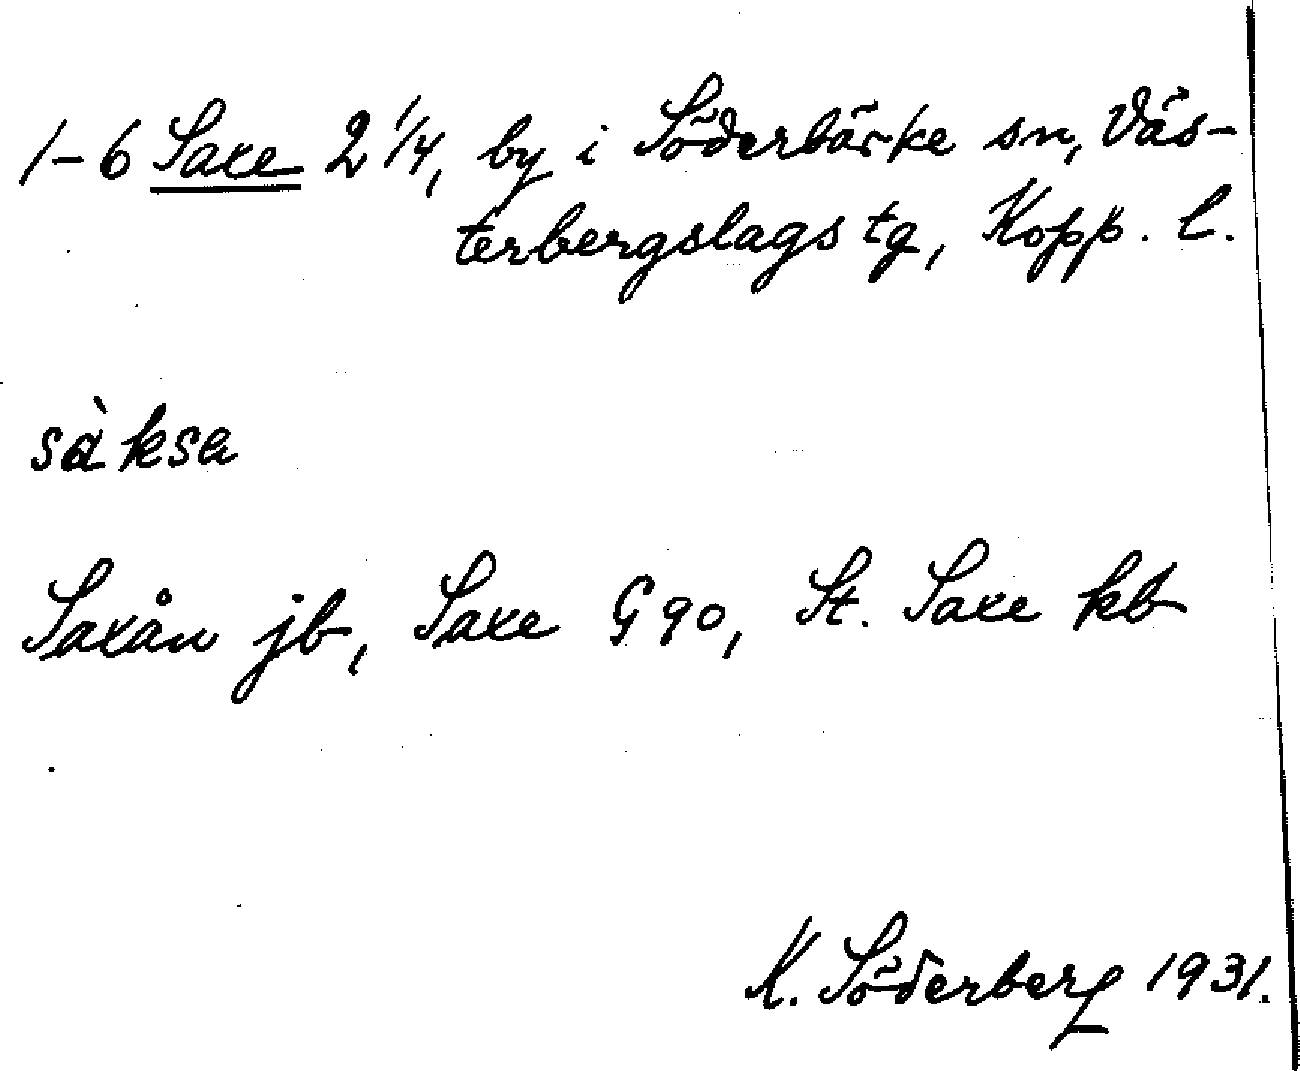 1-6 Saxe 2 1/4, by i Söderbärke sn, Väs-
terbergslags tg, Kopp. l.
sàksa
Saxån jb, Saxe G 90, St. Saxe kb
K. Söderberg 1931.